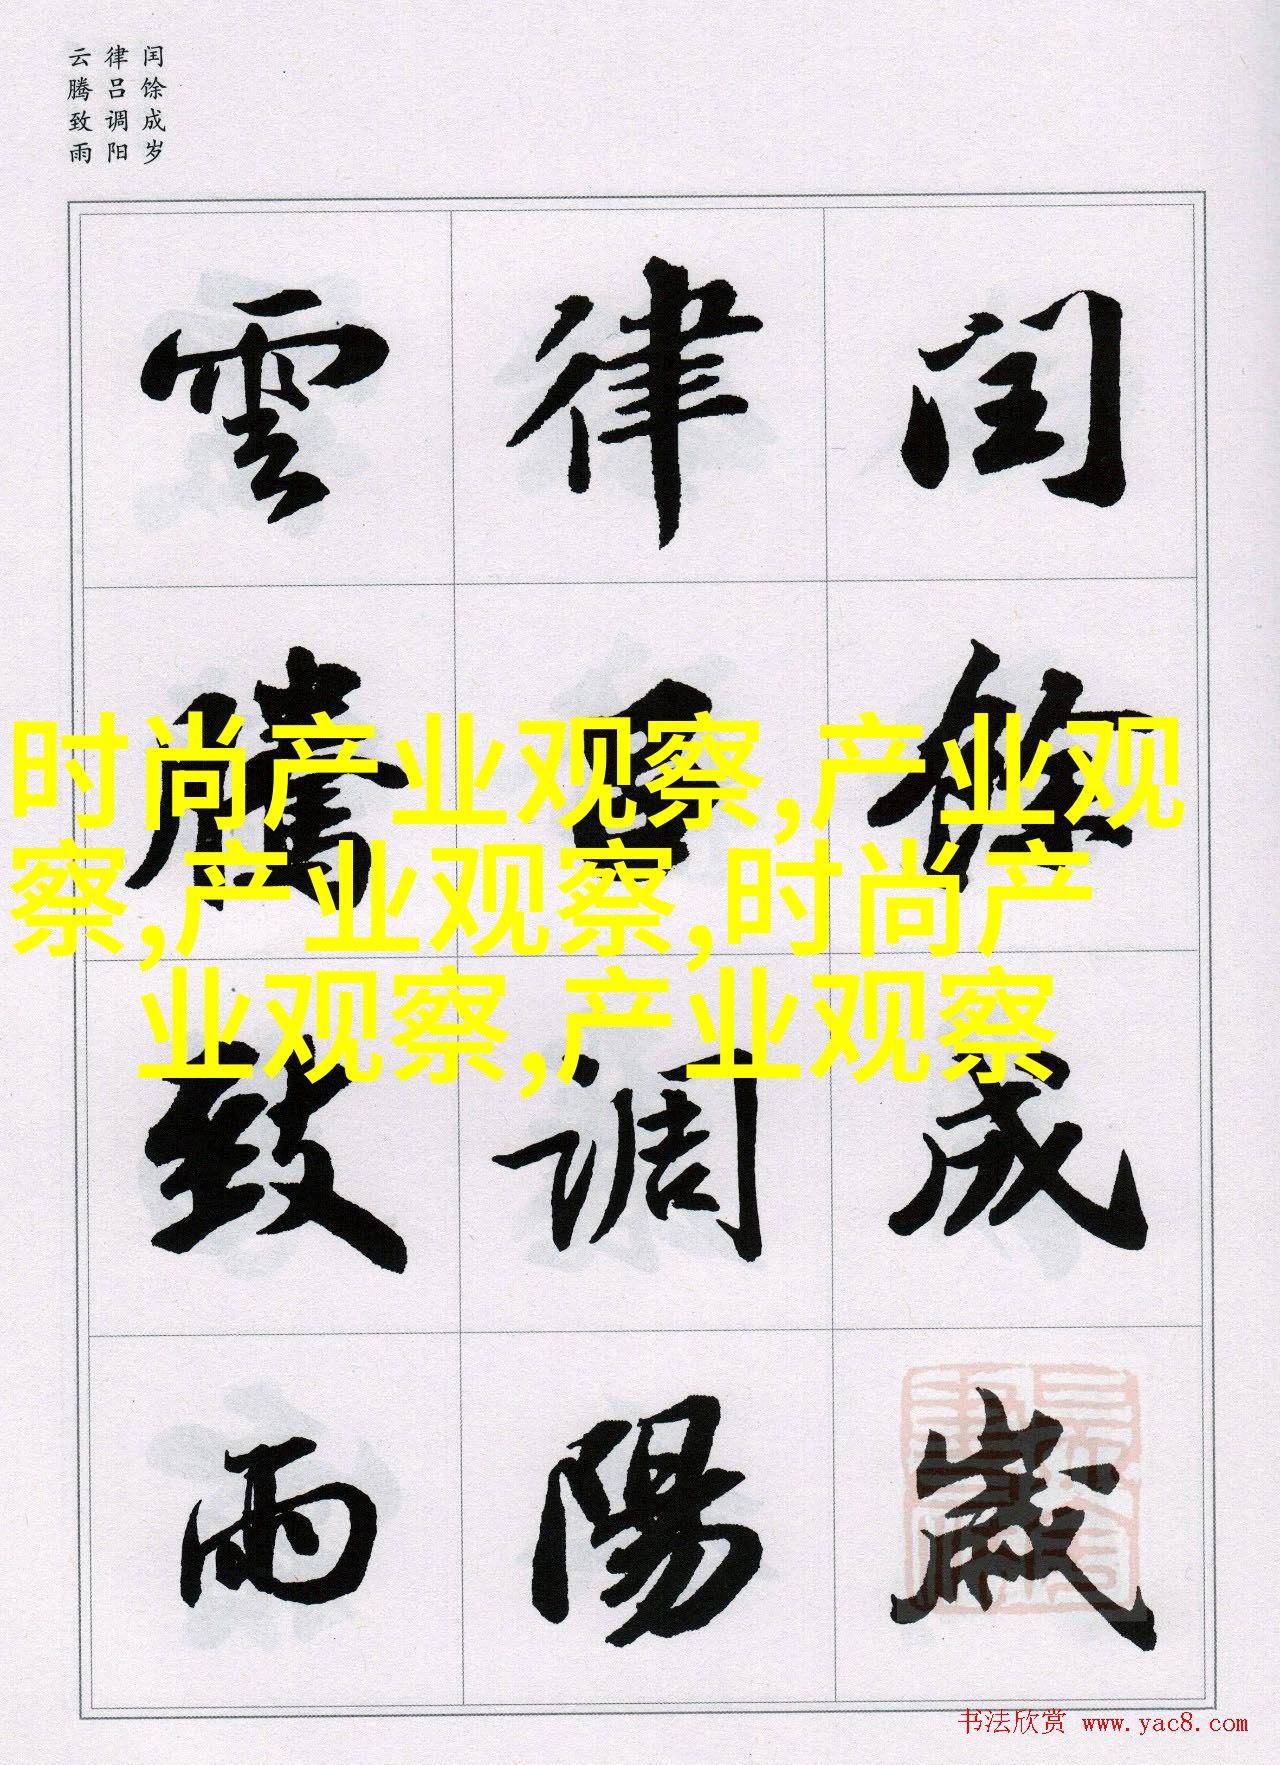 闰馀成岁
律吕调阳
云腾致雨
閏餘成歲
律吕調陽
雲騰致雨
时尚产业观察,产业观
察,产业观察,时尚产
业观察,产业观察
书法欣赏 www.yac8.com